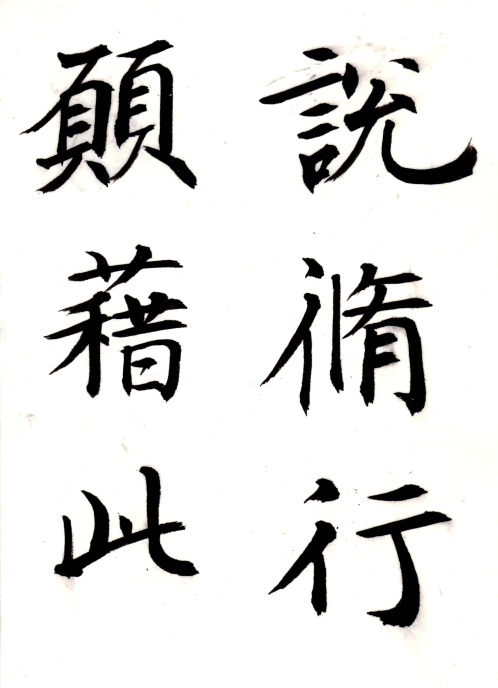 說脩行
願藉此